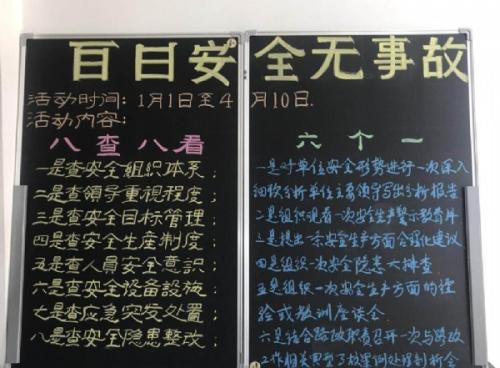 百日安全无事故
活动时间：1月1日至4月10日.
活动内容：
八查八看
一是查安全组织体系；
二是查领导重視程度；
三是查安全目标管理；
四是查安全生産制度；
五是查人員安全意識；
六是查安全设备設施；
七是查应急突发处置；
八是查安全隐患整改；
六个一
一是对单位安全形势进行一次深入
细致分析单位主要领导写出分析报告
二是组织观看一次安全生产警示教育片
三是提出一条安全生产方面合理化建议
四是组织一次安全隐患大排查
五是组织一次安全生产方面的经
验或教训座谈会
六是结合路政职责召开一次与路政
工作相关典型事故案例处理剖析会